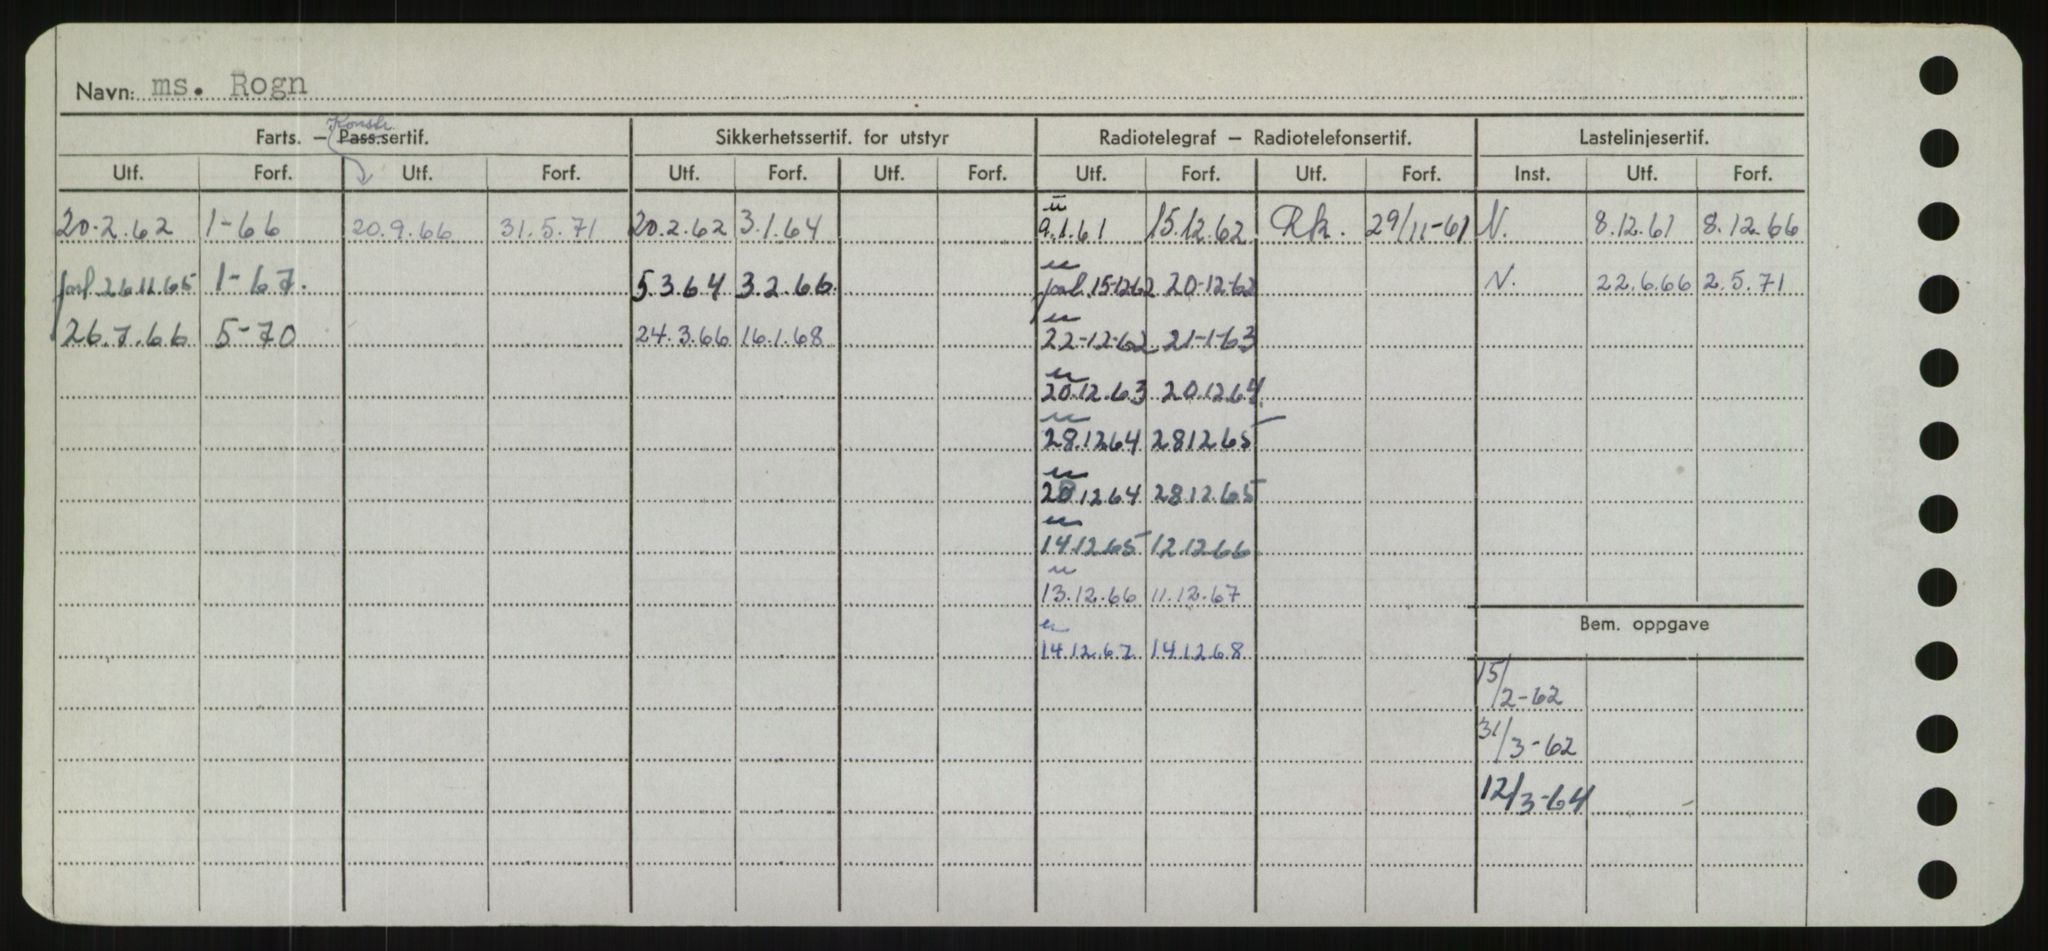 Navn: ms. Rogn
Konstr.
Farts. — Pass.sertif. Sikkerhetssertif. for utstyr Radiotelegraf — Radiotelefonsertif. Lastelinjesertif.
Utf. Forf. Utf. Forf. Utf. Forf. Utf. Forf. Utf. Forf. Utf. Forf. Inst. Utf. Forf.
u
20.2.62 1-66 20.9.66 31.5.71 20.2.62 3.1.64 9.1.61 15.12.62 Rk. 29/11-61 N. 8.12.61 8.12.66
u
forl. 26.11.65 1-67. 5.3.64 3.2.66. forl. 15-12-62 20-12-62 N. 22.6.66 2.5.71
u
26.7.66 5-70 24.3.66 16.1.68 22-12-62 21-1-63
u
20.12.63 20.12.64.
u
28.12.64 28.12.65
u
12.64 28.12.65
u
14.12.65 12.12.66
u
13.12.66 11.12.67
Bem. oppgave
u
14.12.67 14.12.68
15/2-62
31/3-62
12/3-64